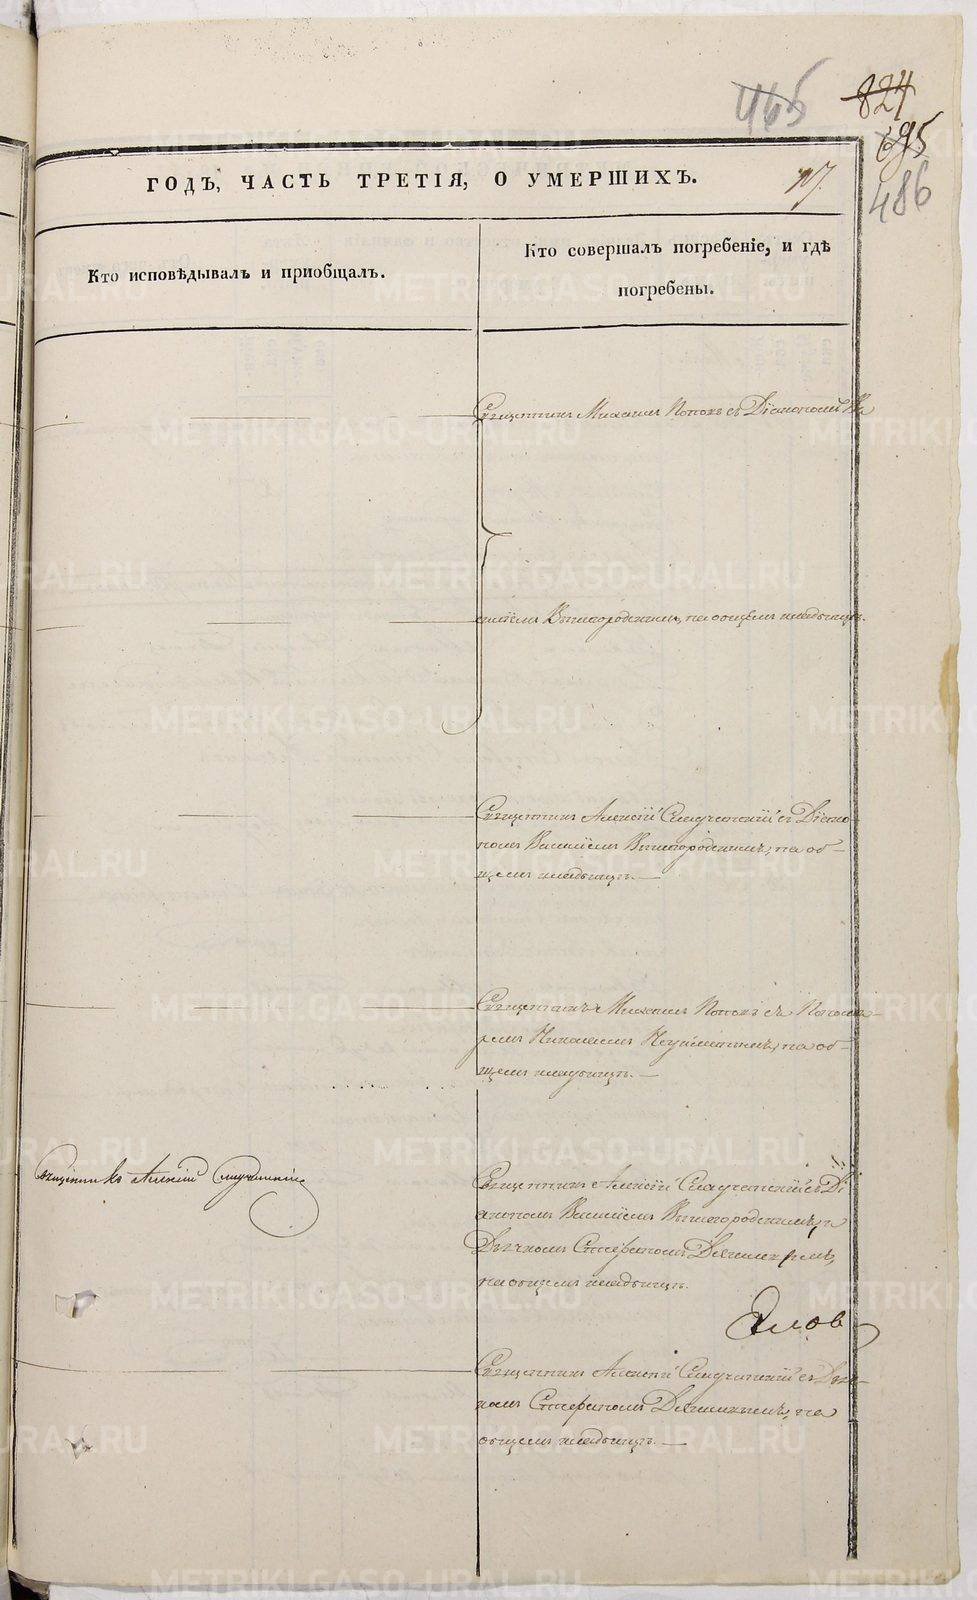 465
824
695
486
ГОДЪ, ЧАСТЬ ТРЕТІЯ, О УМЕРШИХЪ.
Кто исповѣдывалъ и приобщалъ.
Кто совершалъ погребеніе, и гдѣ
погребены.
Священник Михаилъ Поповъ съ Діакономъ Ва
силіемъ Вышегородскимъ, на общемъ кладбищѣ.
Священникъ Алексій съ Діако-
номъ Василіемъ Вышегородскимъ, на об-
щемъ кладбищѣ. —
Священникъ Михаилъ Поповъ съ Пономо-
ремъ Николаемъ на об-
щемъ кладбищѣ. —
Священникъ Алексій
Священникъ Алексій съ Ді
акономъ Василіемъ Вышегородскимъ, и
Дьячкомъ Стефаномъ
на общемъ кладбищѣ.
Священникъ Алексій съ Дьяч-
комъ Стефаномъ на
общемъ кладбищѣ. —
METRIKI.GASO-URAL.RU